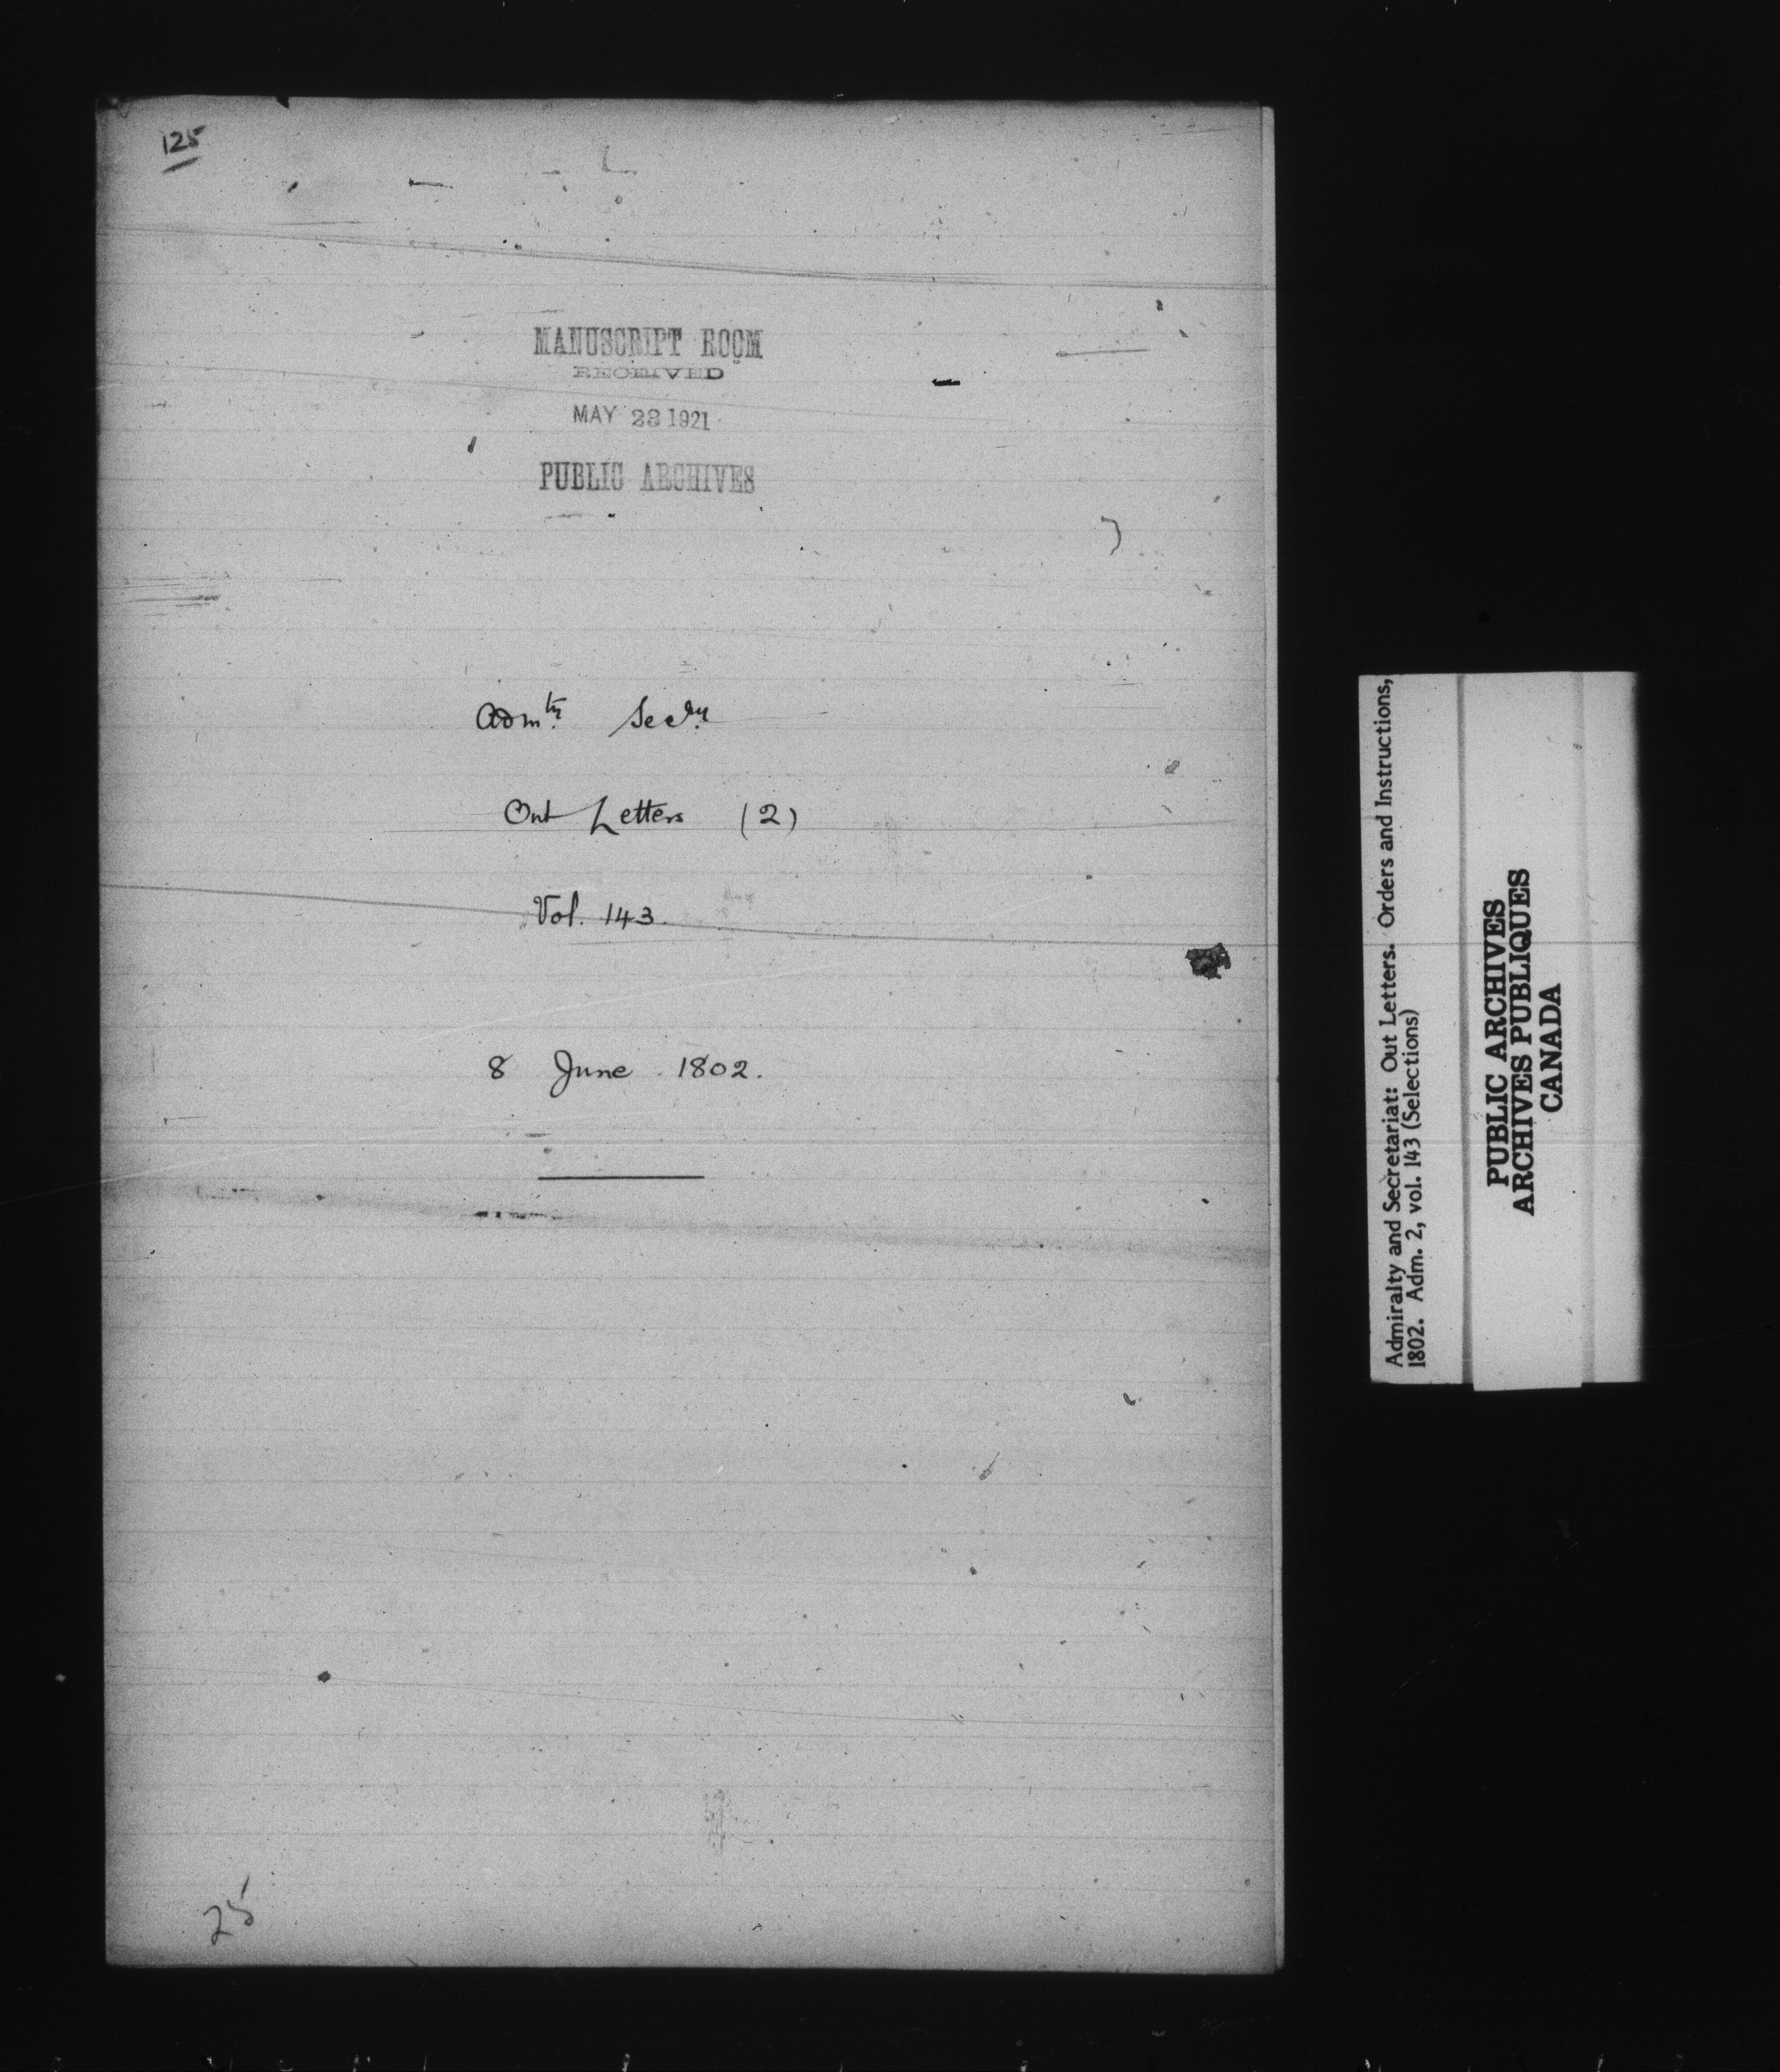 125
MANUSCRIPT ROOM
RECEIVED
MAY 28 1921
PUBLIC ARCHIVES
Admty Secry
Out Letters (2)
Vol. 143.
8 June 1802.
25
Admiralty and Secretariat: Out Letters. Orders and Instructions,
1802. Adm. 2, vol. 143 (Selections)
PUBLIC ARCHIVES
ARCHIVES PUBLIQUES
CANADA